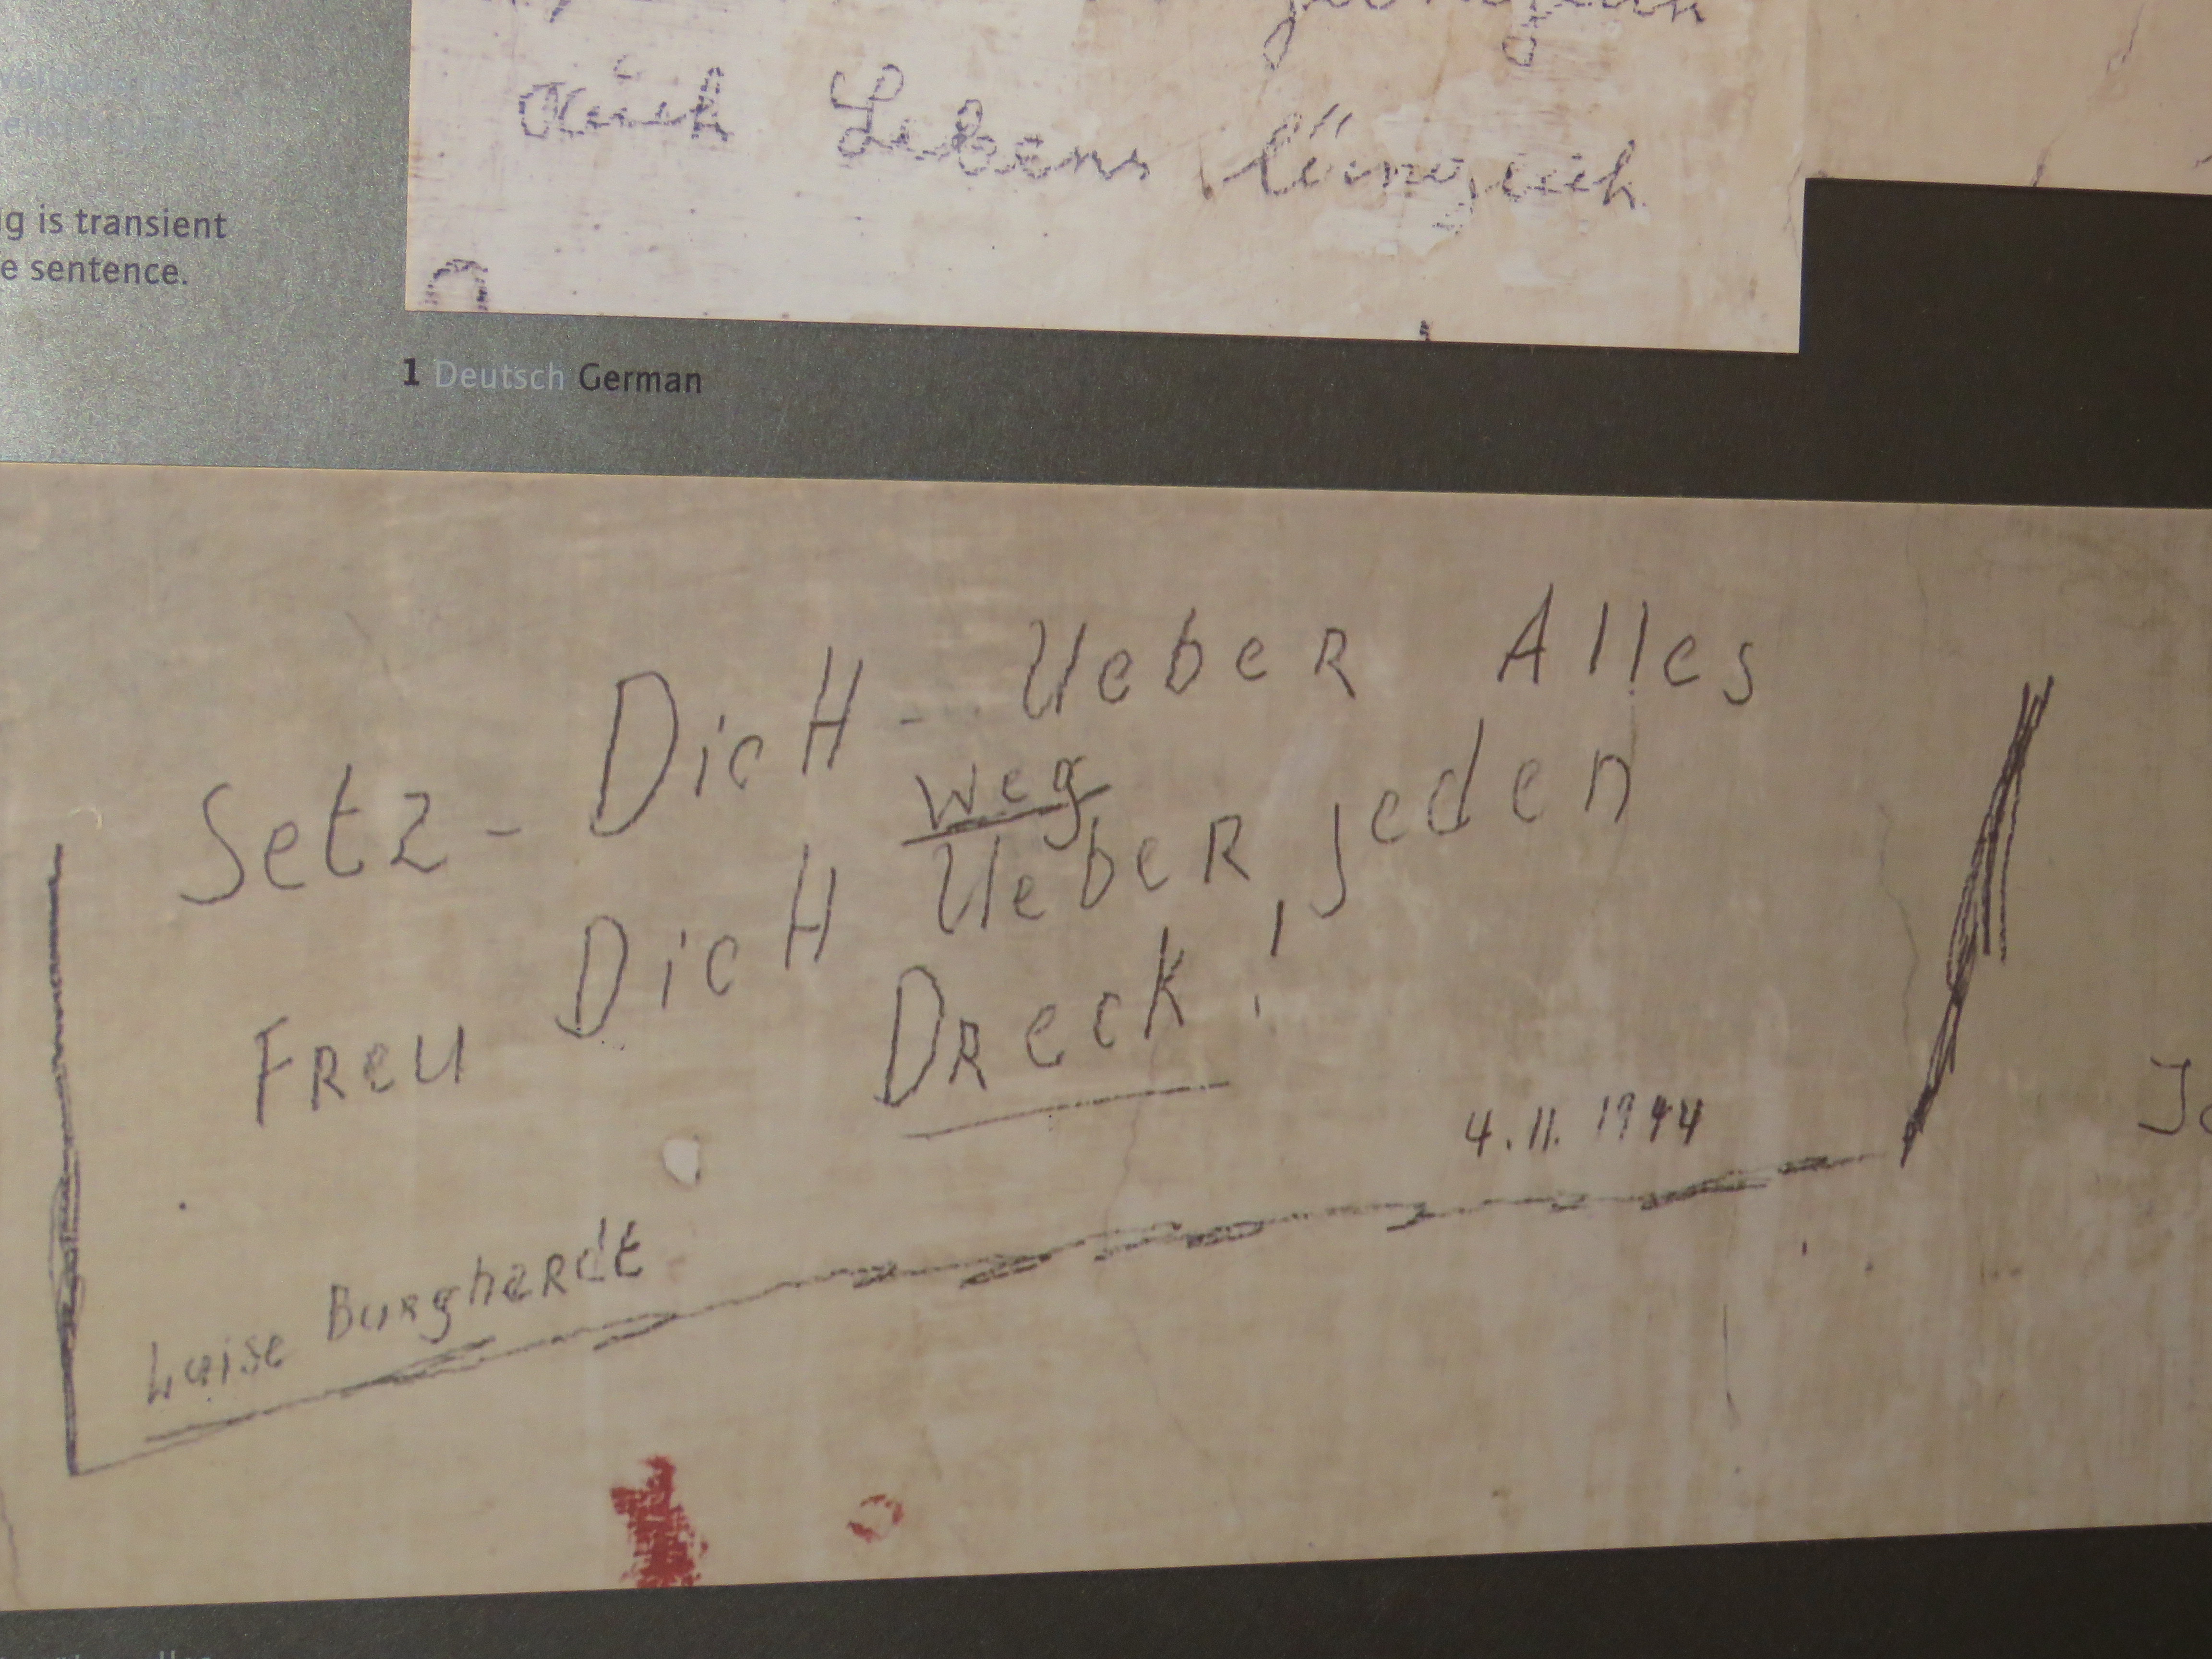 g is transient
e sentence.
auch Lebens länglich
1 Deutsch German
Setz - DicH - UebeR Alles
weg
FReu DicH UebeR jeden
DReck!
4.11.1944
Luise BuRghaRdt